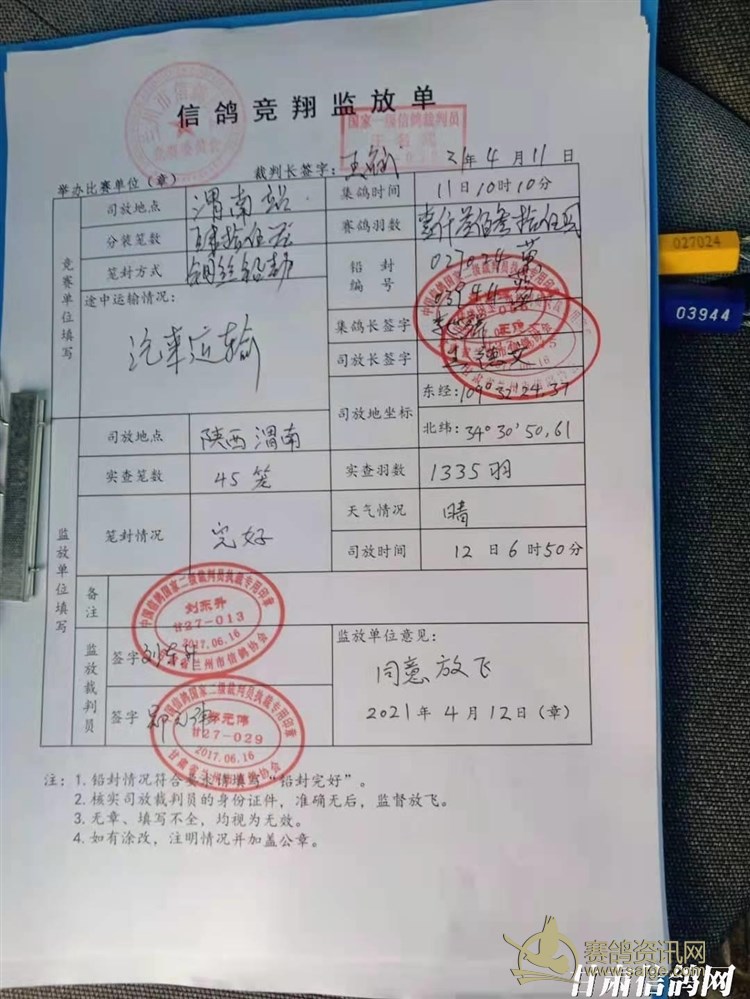 信鸽竞翔监放单
国家一级信鸽裁判员
举办比赛单位（章）
裁判长签字：
21年4月11日
竞赛单位填写
司放地点 渭南站
集鸽时间 11日10时10分
分装笼数 肆拾伍笼
赛鸽羽数 壹仟叁佰叁拾伍羽
笼封方式 钢丝铅封
铅封编号 027024 黄
03944 蓝
途中运输情况：
汽车运输
集鸽长签字
司放长签字
司放地坐标
东经：109°32'24.37
北纬：34°30'50.61
监放单位填写
司放地点 陕西渭南
实查笼数 45笼
实查羽数 1335羽
笼封情况 完好
天气情况 晴
司放时间 12日6时50分
备注
中国信鸽国家二级裁判员执裁专用印章
刘东升
甘27-013
2017.06.16
甘肃省兰州市信鸽协会
监放裁判员
签字 刘东升
监放单位意见：
同意放飞
2021年4月12日（章）
中国信鸽国家二级裁判员执裁专用印章
签字
甘27-029
2017.06.16
甘肃省兰州市信鸽协会
注：1. 铅封情况符合要求请填写“铅封完好”。
2. 核实司放裁判员的身份证件，准确无后，监督放飞。
3. 无章、填写不全，均视为无效。
4. 如有涂改，注明情况并加盖公章。
027024
03944
赛鸽资讯网
www.saige.com
甘肃信鸽网